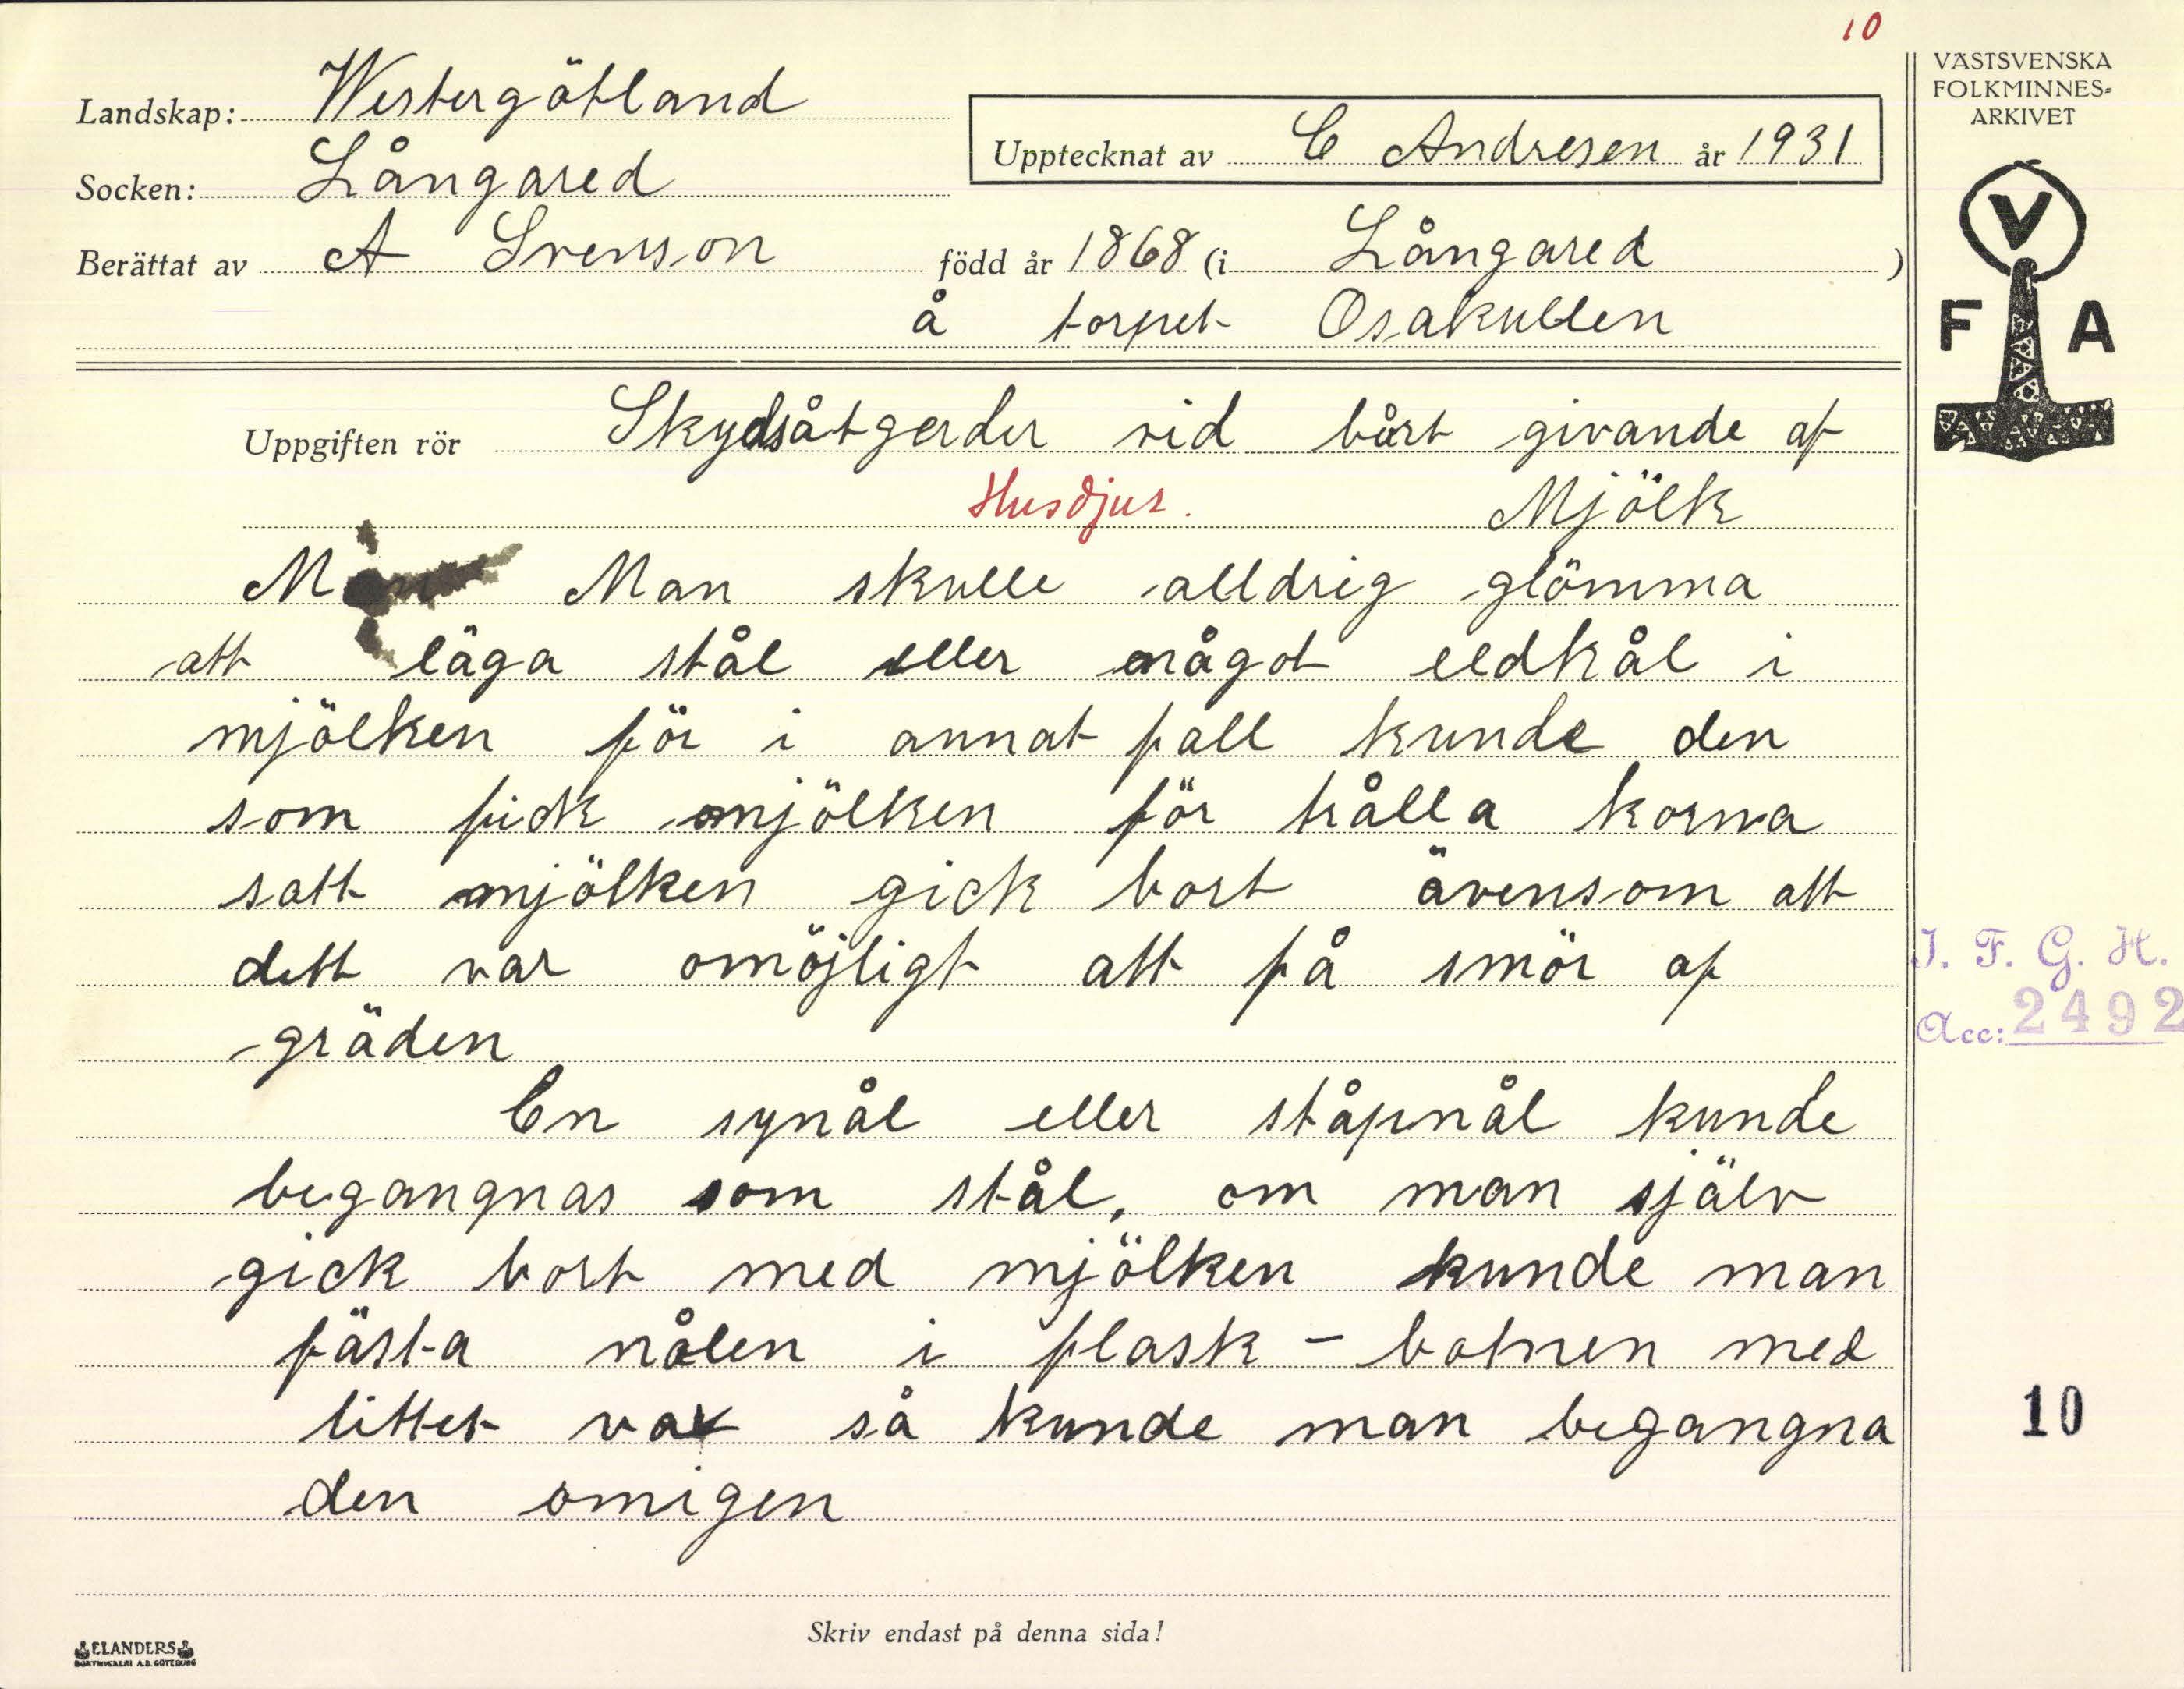 10
VÄSTSVENSKA
FOLKMINNES-
ARKIVET
V
F A
Landskap: Westergötland
Upptecknat av C Andresen år 1931
Socken: Långared
Berättat av A Svenson född år 1868 (i Långared )
å torpet Osakullen
Uppgiften rör Skydsåtgerder vid bårt givande af
Husdjur. Mjölk
Man skulle alldrig glömma
att läga stål eller något eldkål i
mjölken för i annat fall kunde den
som fick mjölken för trålla korna
satt mjölken gick bort ävensom att
dett var omöjligt att få smör af
gräden
En synål eller ståpnål kunde
begangnas som stål, om man själv
gick bort med mjölken kunde man
fästa nålen i flask - botnen med
littet vax så kunde man begangna
den omigen
I. F. G. H.
Acc: 2492
10
Skriv endast på denna sida!
ELANDERS
BOKTRYCKERI A.B. GÖTEBORG